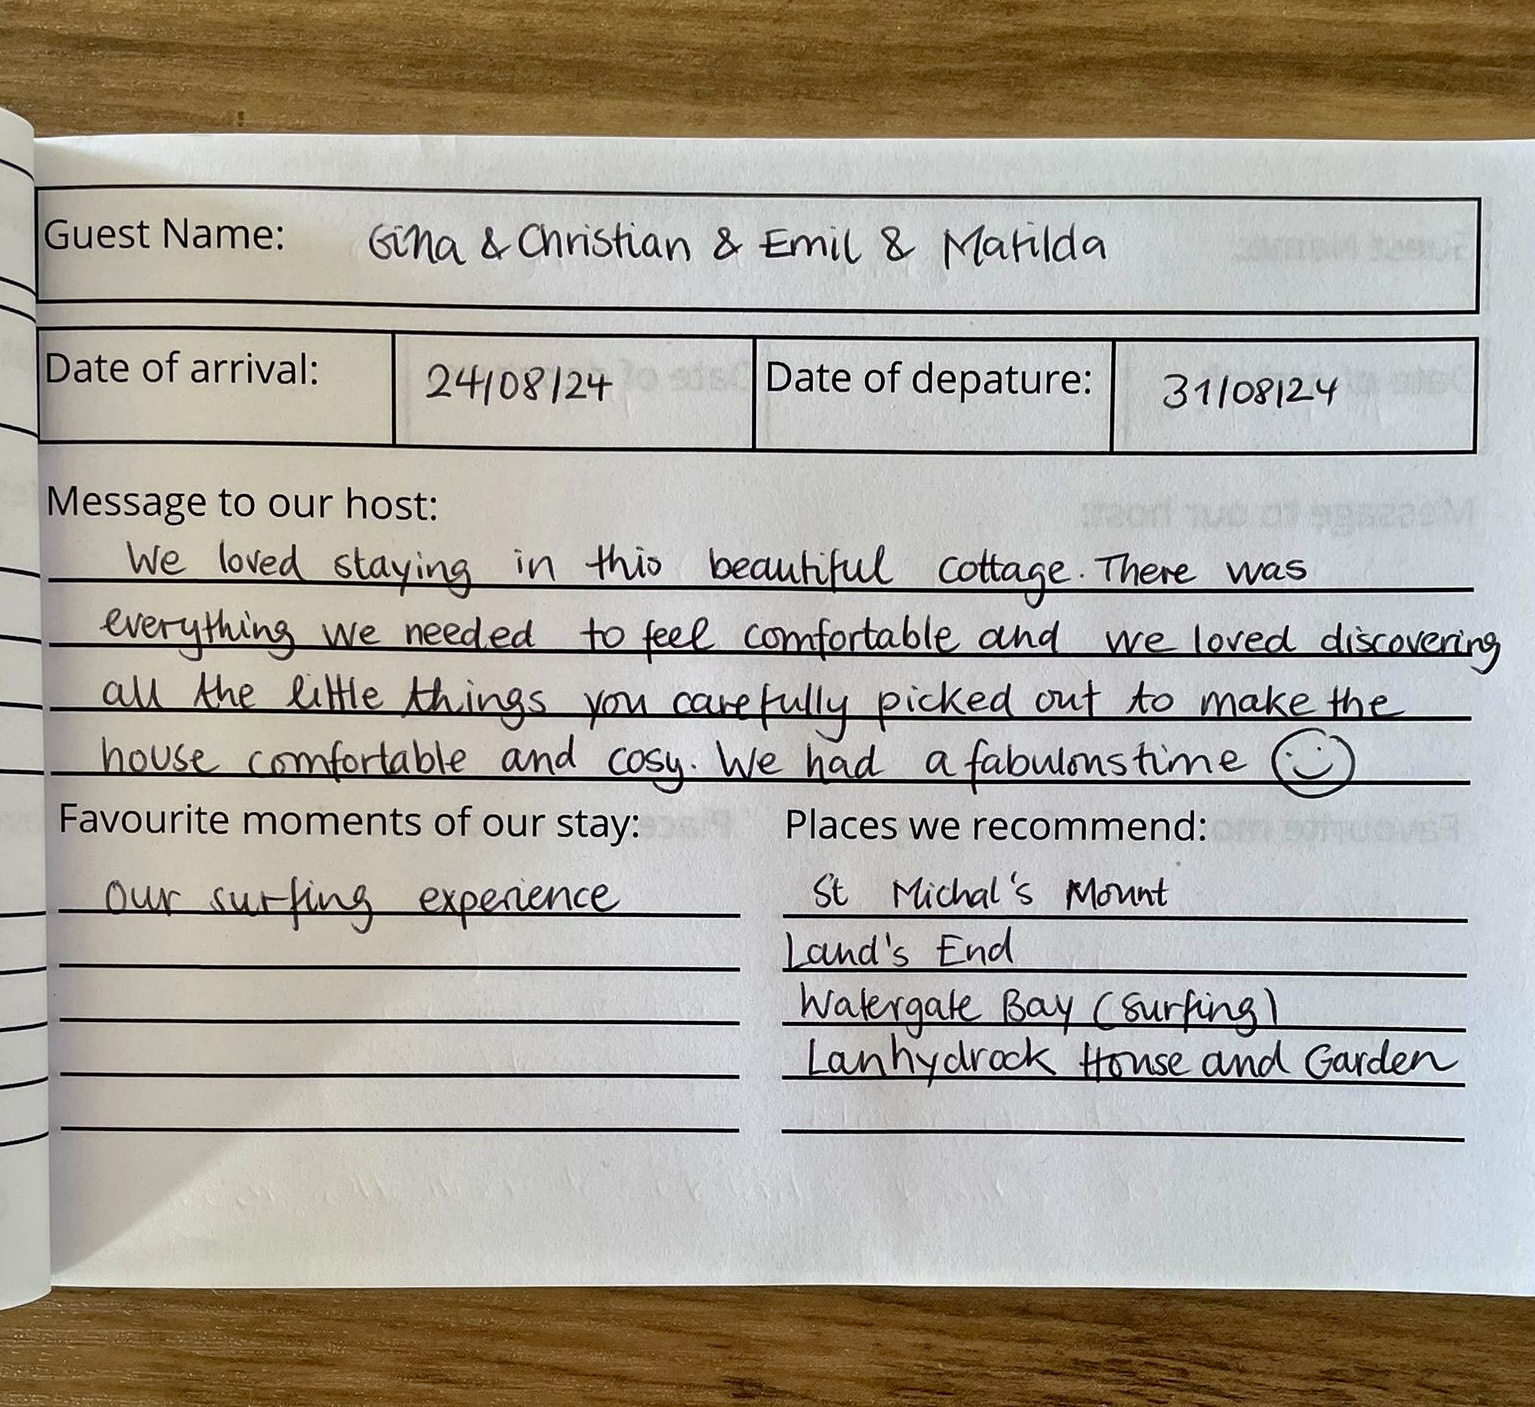 Guest Name: Gina & Christian & Emil & Matilda
Date of arrival: 24/08/24 Date of depature: 31/08/24
Message to our host:
We loved staying in this beautiful cottage. There was
everything we needed to feel comfortable and we loved discovering
all the little things you carefully picked out to make the
house comfortable and cosy. We had a fabulous time ☺
Favourite moments of our stay:
our surfing experience
Places we recommend:
St Michal's Mount
Land's End
Watergate Bay (surfing)
Lanhydrock House and Garden